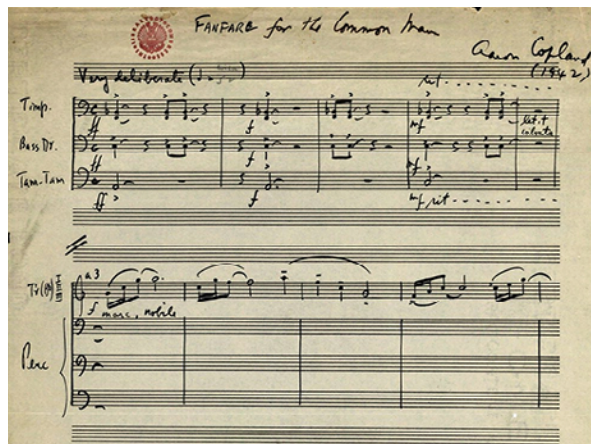 FANFARE for the Common Man
Aaron Copland
(1942)
Very deliberate (
rit.
Timp.
ff
f
mf
Bass Dr.
ff
f
mf
Tam-Tam
ff
f
mf rit.
a 3
f marc. nobile
Perc